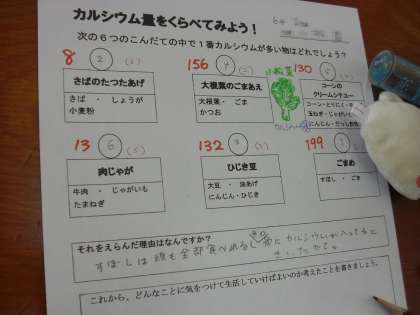 カルシウム量をくらべてみよう!
次の6つのこんだての中で1番カルシウムが多い物はどれでしょう?
8 ②
さばのたつたあげ
さば ・ しょうが
小麦粉
156
大根葉のごまあえ
大根葉・ ごま
かつお
小松菜
130
コーンの
クリームシチュー
コーン・とりにく・
玉ねぎ・じゃがいも
にんじん・だっし粉乳
13 ⑥ (5)
肉じゃが
牛肉 ・ じゃがいも
たまねぎ
132
ひじき豆
大豆 ・ 油あげ
にんじん・ひじき
199
ごまめ
すぼし ・ ごま
それをえらんだ理由はなんですか?
すぼしは頭も全部食べれるし
これから、どんなことに気をつけて生活していけばよいのか考えたことを書きましょう。